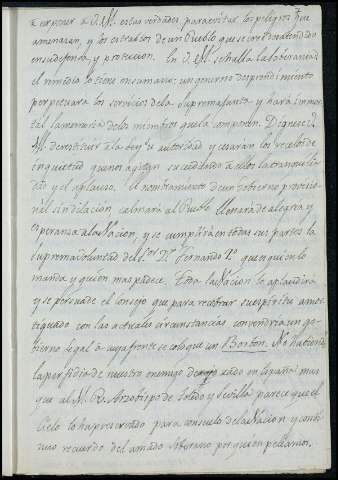 a exponer a V.M. estas verdades para evitar los peligros que
amenazan, y los estragos de un Pueblo que se cree desatendido
en su defensa, y proteccion. En V.M. se halla la soberania
el remedio lo tiene en su mano: un generoso desprendimiento
perpetuara los servicios de la Suprema Junta y hara inmor-
tal la memoria de los miembros que la componen. Dignese V.
M. de restituir a la Ley su autoridad y cesaran los recelos de
inquietud que nos agitan sucediendo a ellos la tranquili-
dad y el aplauso. El nombramiento de un Gobierno provisio-
nal sin dilacion calmará al Pueblo llenará de alegria y
esperanza a la Nacion, y se cumplirá en todas sus partes la
suprema voluntad del Sor. Dn. Fernando 7º. que es quien lo
manda y quien mas padece. Toda la Nacion lo aplaudirá
y se persuade el Consejo que para recobrar su espiritu amor-
tiguado con las actuales circunstancias convendria un go-
bierno legal a cuya frente se coloque un Borbon. No habiendo
la perfidia de nuestro enemigo dejado en España mas
que al M.R. Arzobispo de Toledo y Sevilla parece que el
Cielo lo ha preservado para consuelo de la Nacion y conti-
nuo recuerdo del amado soberano por quien peleamos.